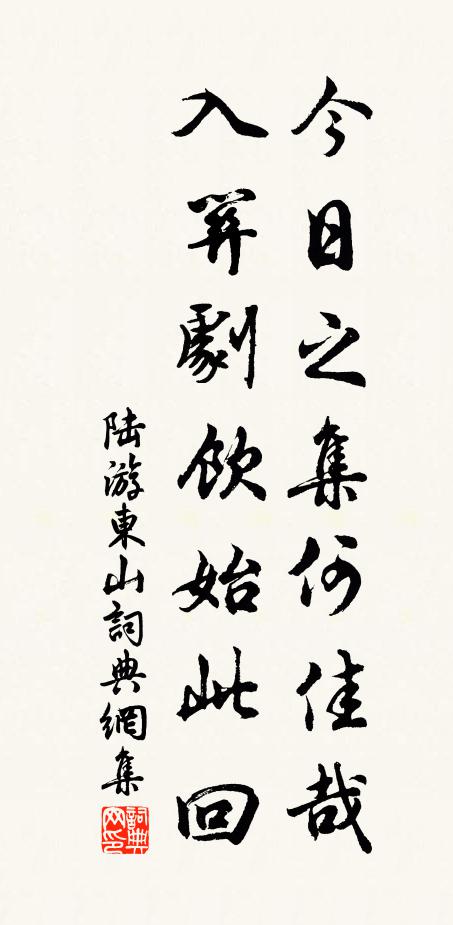 今日之集何佳哉
入關劇飲始此回
陸游東山詞典網集
詞典网印